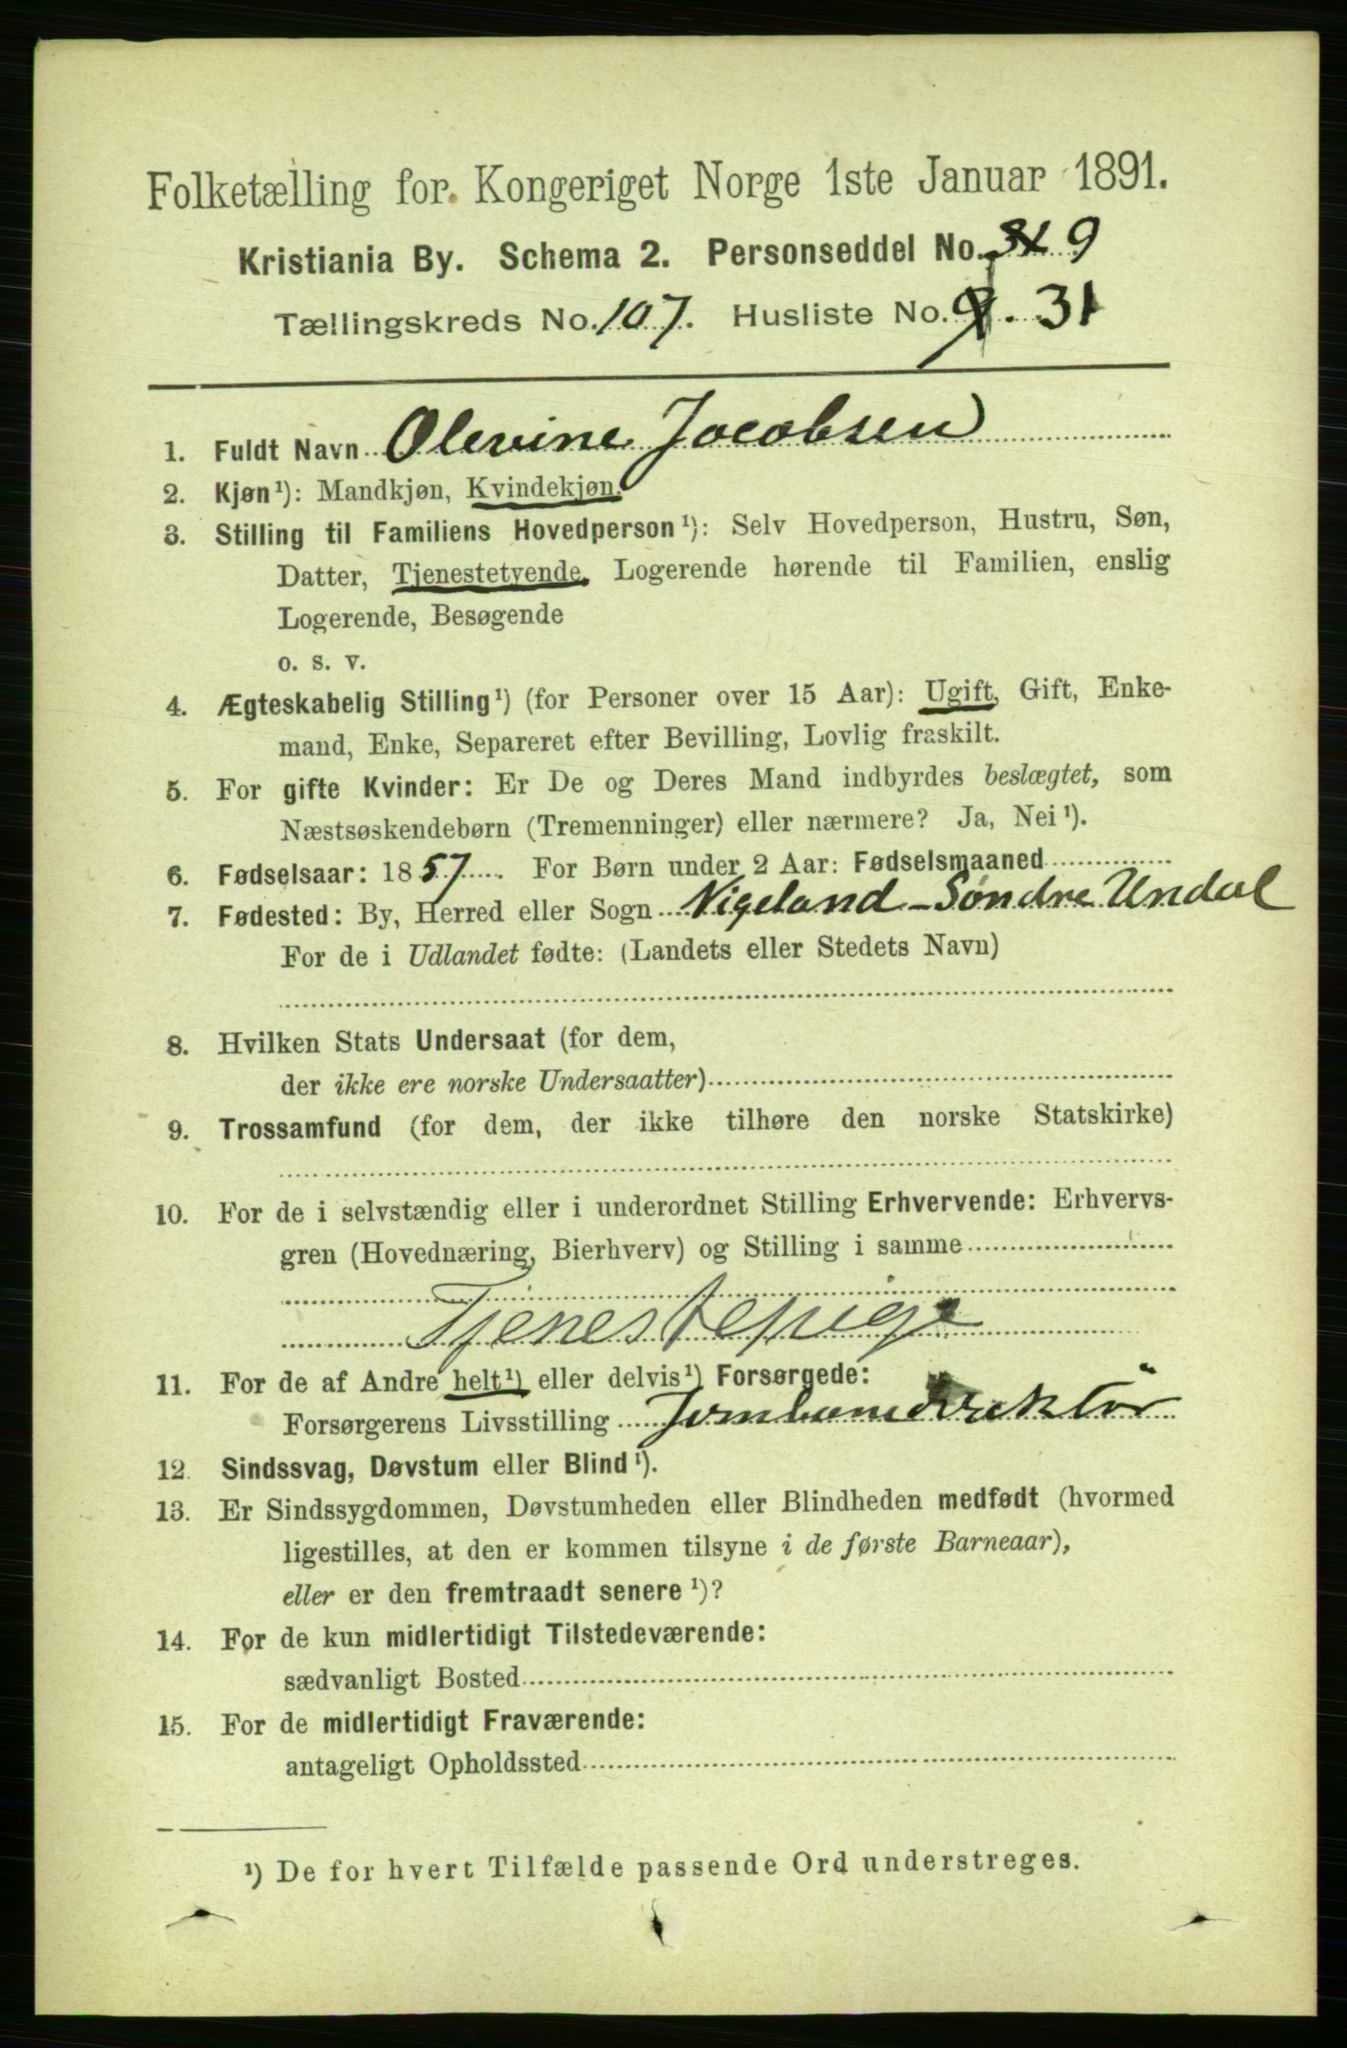 Folketælling for Kongeriget Norge 1ste Januar 1891.
Kristiania By. Schema 2. Personseddel No. 9
Tællingskreds No. 107. Husliste No. 9. 31
1. Fuldt Navn Olevine Jacobsen
2. Kjøn¹): Mandkjøn, Kvindekjøn.
3. Stilling til Familiens Hovedperson¹): Selv Hovedperson, Hustru, Søn,
Datter, Tjenestetyende, Logerende hørende til Familien, enslig
Logerende, Besøgende
o. s. v.
4. Ægteskabelig Stilling¹) (for Personer over 15 Aar): Ugift, Gift, Enke-
mand, Enke, Separeret efter Bevilling, Lovlig fraskilt.
5. For gifte Kvinder: Er De og Deres Mand indbyrdes beslægtet, som
Næstsøskendebørn (Tremenninger) eller nærmere? Ja, Nei¹).
6. Fødselsaar: 1857. For Børn under 2 Aar: Fødselsmaaned
7. Fødested: By, Herred eller Sogn Vigeland - Søndre Undal
For de i Udlandet fødte: (Landets eller Stedets Navn)
8. Hvilken Stats Undersaat (for dem,
der ikke ere norske Undersaatter)
9. Trossamfund (for dem, der ikke tilhøre den norske Statskirke)
10. For de i selvstændig eller i underordnet Stilling Erhvervende: Erhvervs-
gren (Hovednæring, Bierhverv) og Stilling i samme
Tjenestepige
11. For de af Andre helt¹) eller delvis¹) Forsørgede:
Forsørgerens Livsstilling Jernbanedirektör
12. Sindssvag, Døvstum eller Blind¹).
13. Er Sindssygdommen, Døvstumheden eller Blindheden medfødt (hvormed
ligestilles, at den er kommen tilsyne i de første Barneaar),
eller er den fremtraadt senere¹)?
14. For de kun midlertidigt Tilstedeværende:
sædvanligt Bosted
15. For de midlertidigt Fraværende:
antageligt Opholdssted
¹) De for hvert Tilfælde passende Ord understreges.